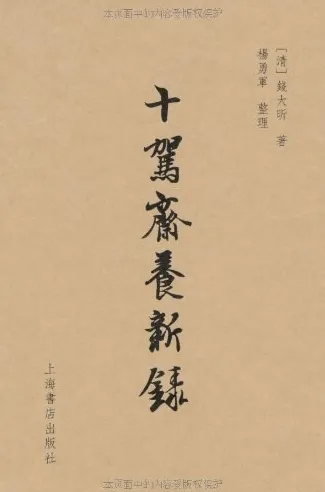 本页面中的内容受版权保护
[清]錢大昕 著
楊勇軍 整理
十駕齋養新錄
上海書店出版社
本页面中的内容受版权保护